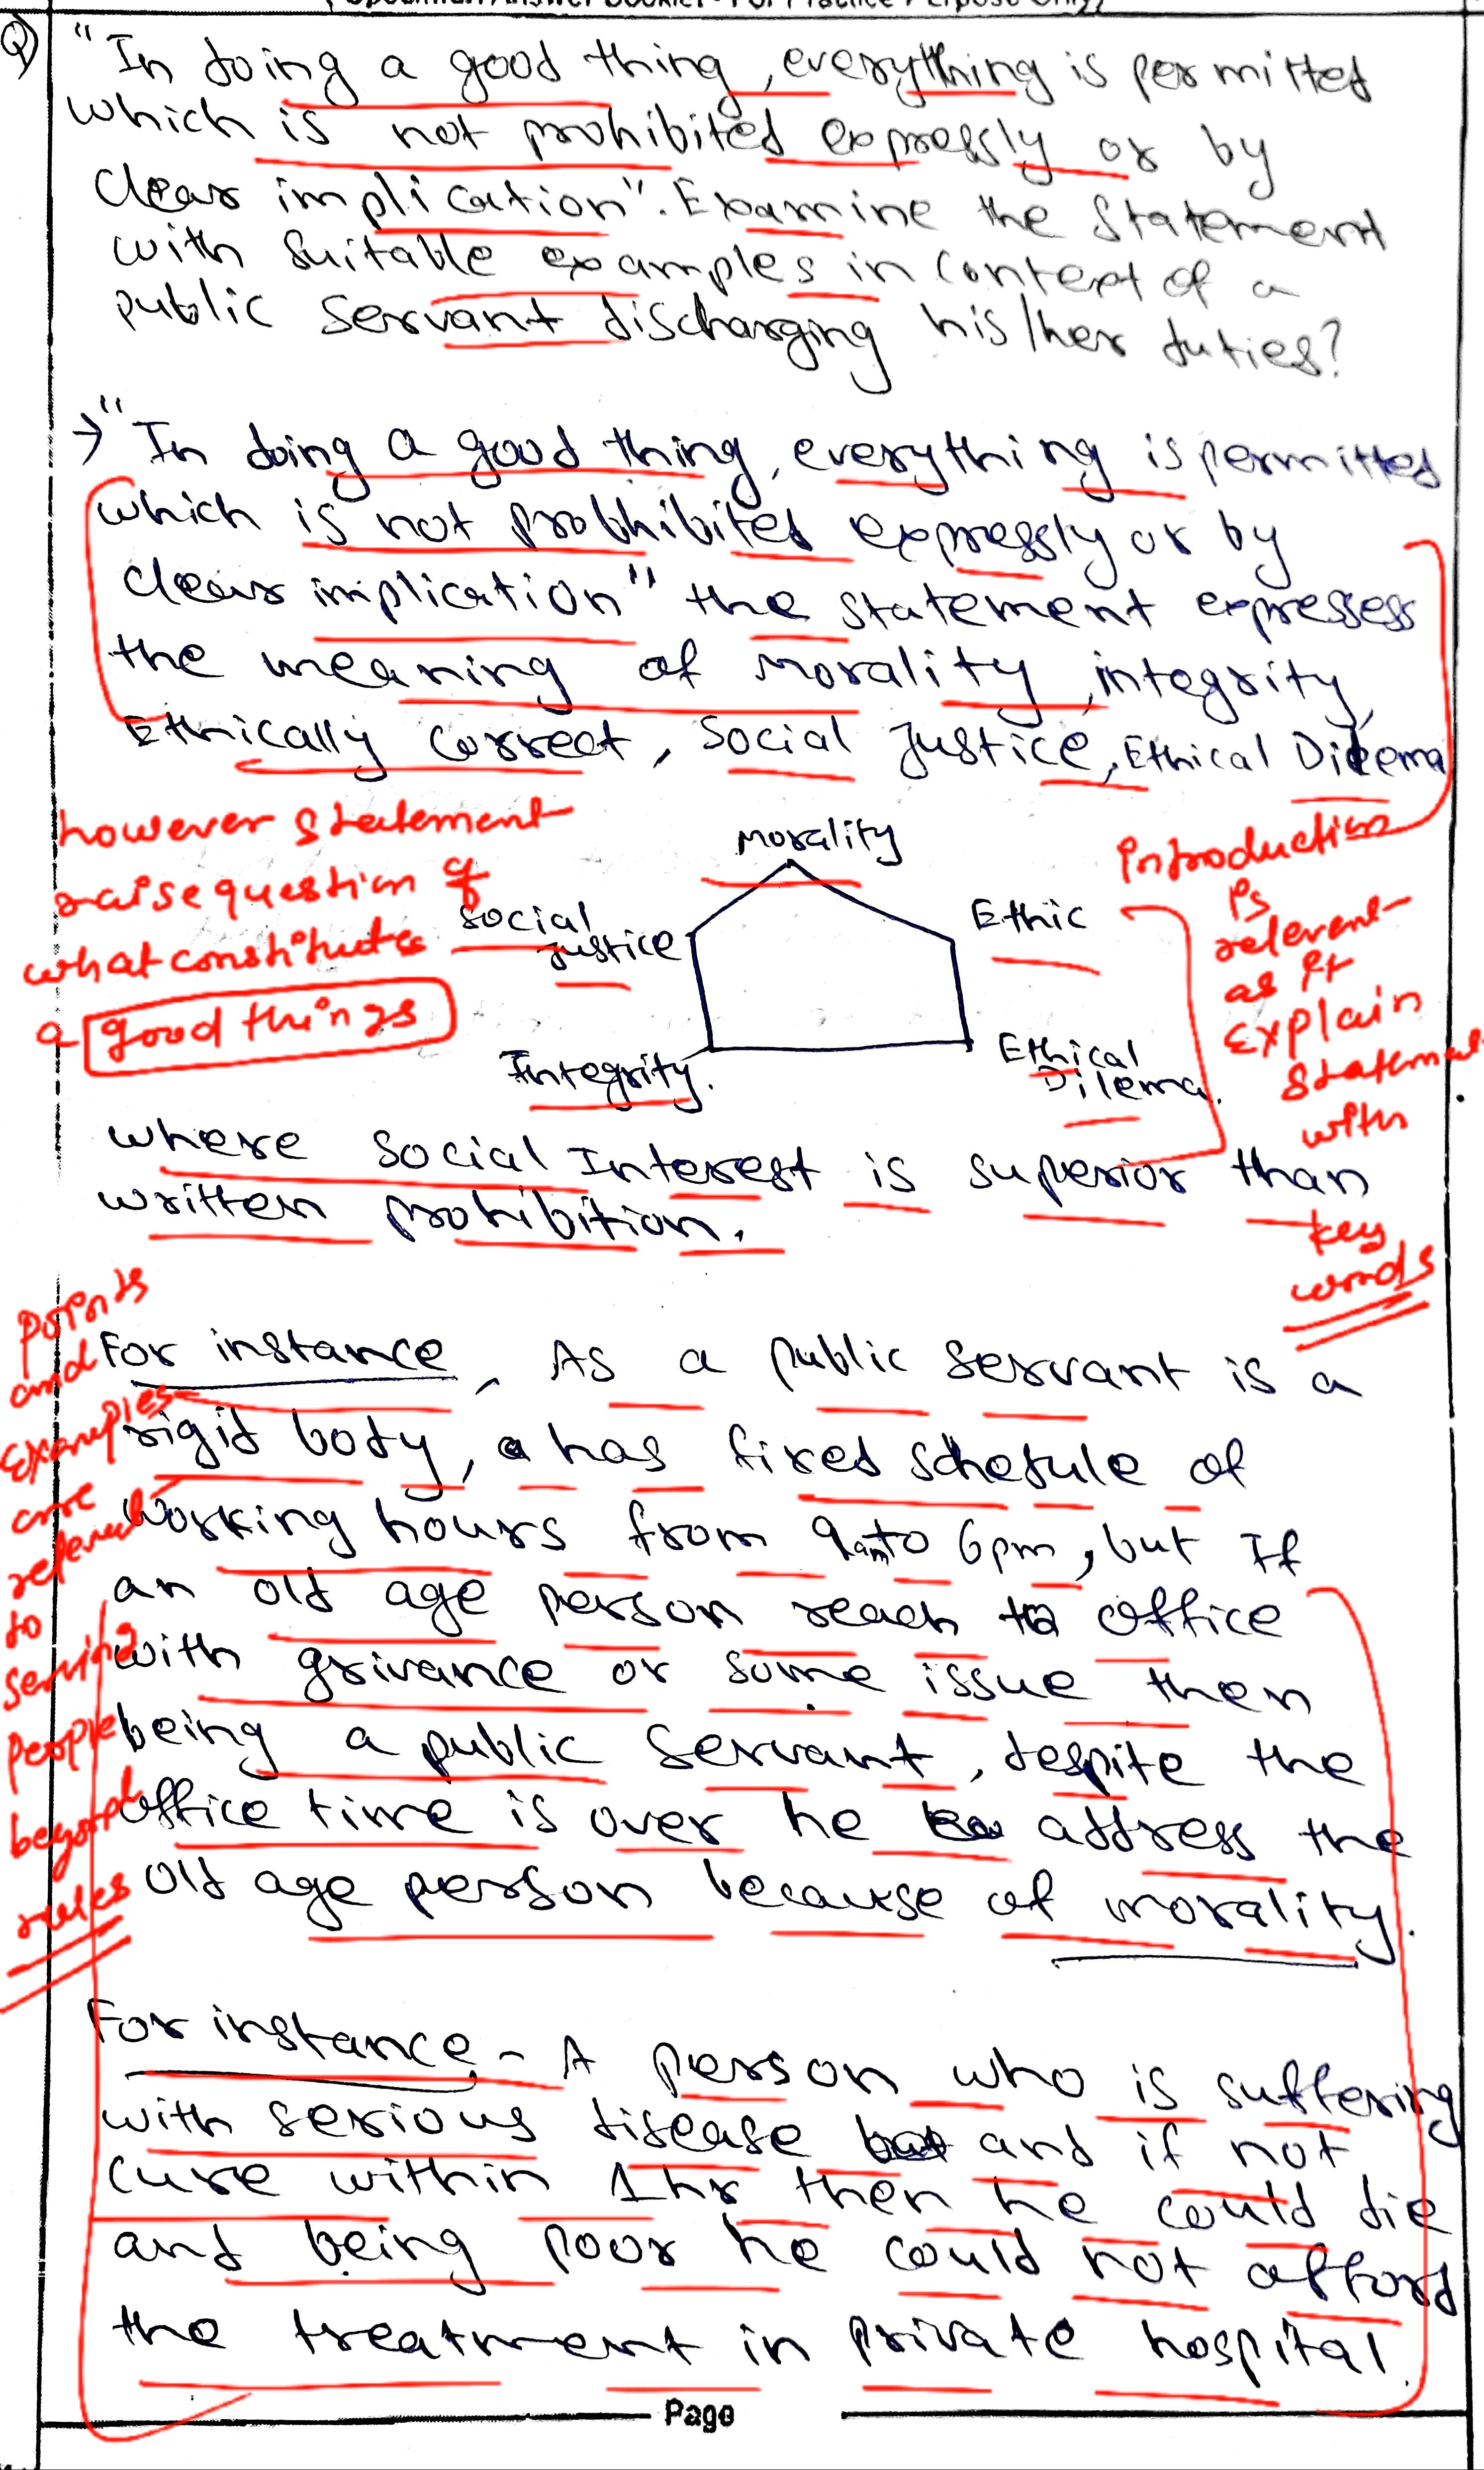 Q) "In doing a good thing, everything is permitted
which is not prohibited expressly or by
clear implication". Examine the statement
with suitable examples in context of a
public servant discharging his/her duties?
→ "In doing a good thing, everything is permitted
which is not probhibited expressly or by
clear implication" the statement expressess
the meaning of morality, integrity,
Ethically correct, Social Justice, Ethical Dilema
however statement
raise question of
what constitutes
a good things
morality
Social
Justice
Ethic
Integrity.
Ethical
Dilema.
Introduction
is
relevent
as it
Explain
statement
with
key
words
where social Interest is superior than
written prohibition.
Points
and
Examples
are
relevent
to
serving
people
beyond
rules
For instance, As a public servant is a
rigid body, has fixed schedule of
working hours from 9am to 6pm, but If
an old age person reach to office
with grivance or some issue then
being a public servant, despite the
office time is over he address the
old age person because of morality.
For instance - A person who is suffering
with serious disease and if not
cure within 1hr then he could die
and being poor he could not afford
the treatment in private hospital.
Page